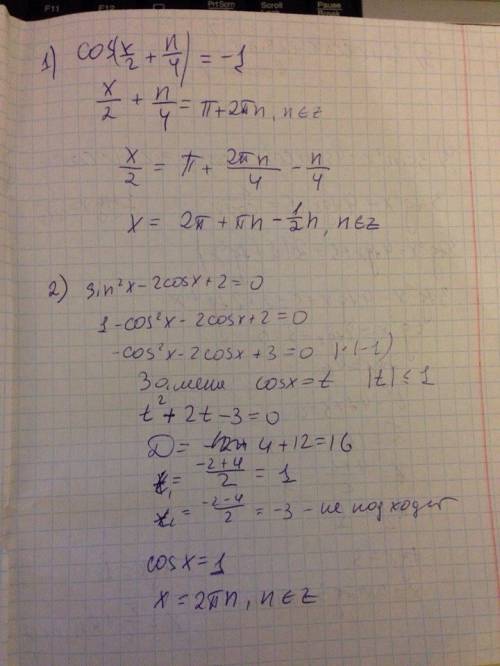 F11 F12 PrtScrn Scroll Pause
1) cos(x/2 + п/4) = -1
x/2 + п/4 = π + 2πn, n∈z
x/2 = π + 2πn/4 - п/4
x = 2π + πn - 1/2 п, n∈z
2) sin²x - 2cosx + 2 = 0
1 - cos²x - 2cosx + 2 = 0
-cos²x - 2cosx + 3 = 0 |·(-1)
Замена cosx = t |t| ≤ 1
t² + 2t - 3 = 0
D = 4 + 12 = 16
t₁ = -2+4/2 = 1
= -2-4/2 = -3 - не подходит
cosx = 1
x = 2πn, n∈z